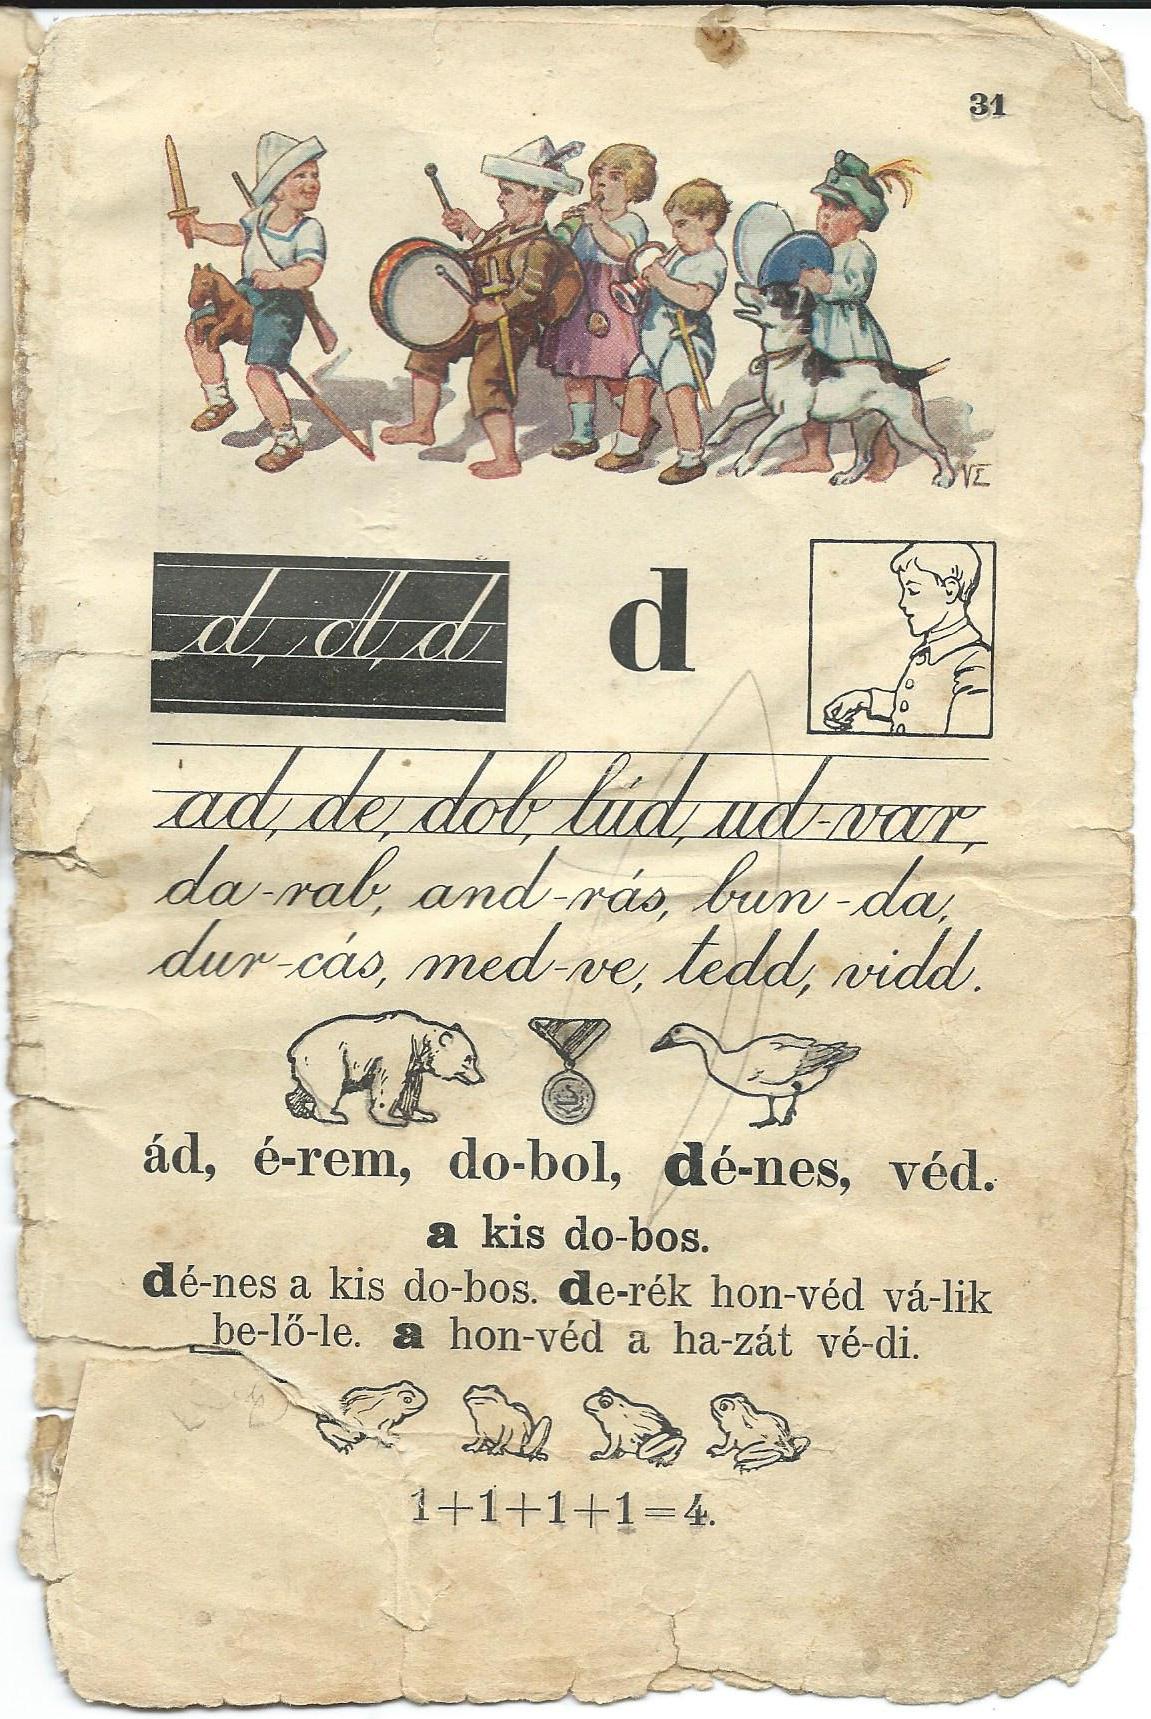 31
VE
d, d, d
d
ad, de, dob, lúd, ud-var,
da-rab, and-rás, bun-da,
dur-cás, med-ve, tedd, vidd.
ád, é-rem, do-bol, dé-nes, véd.
a kis do-bos.
dé-nes a kis do-bos. de-rék hon-véd vá-lik
be-lő-le. a hon-véd a ha-zát vé-di.
1+1+1+1=4.